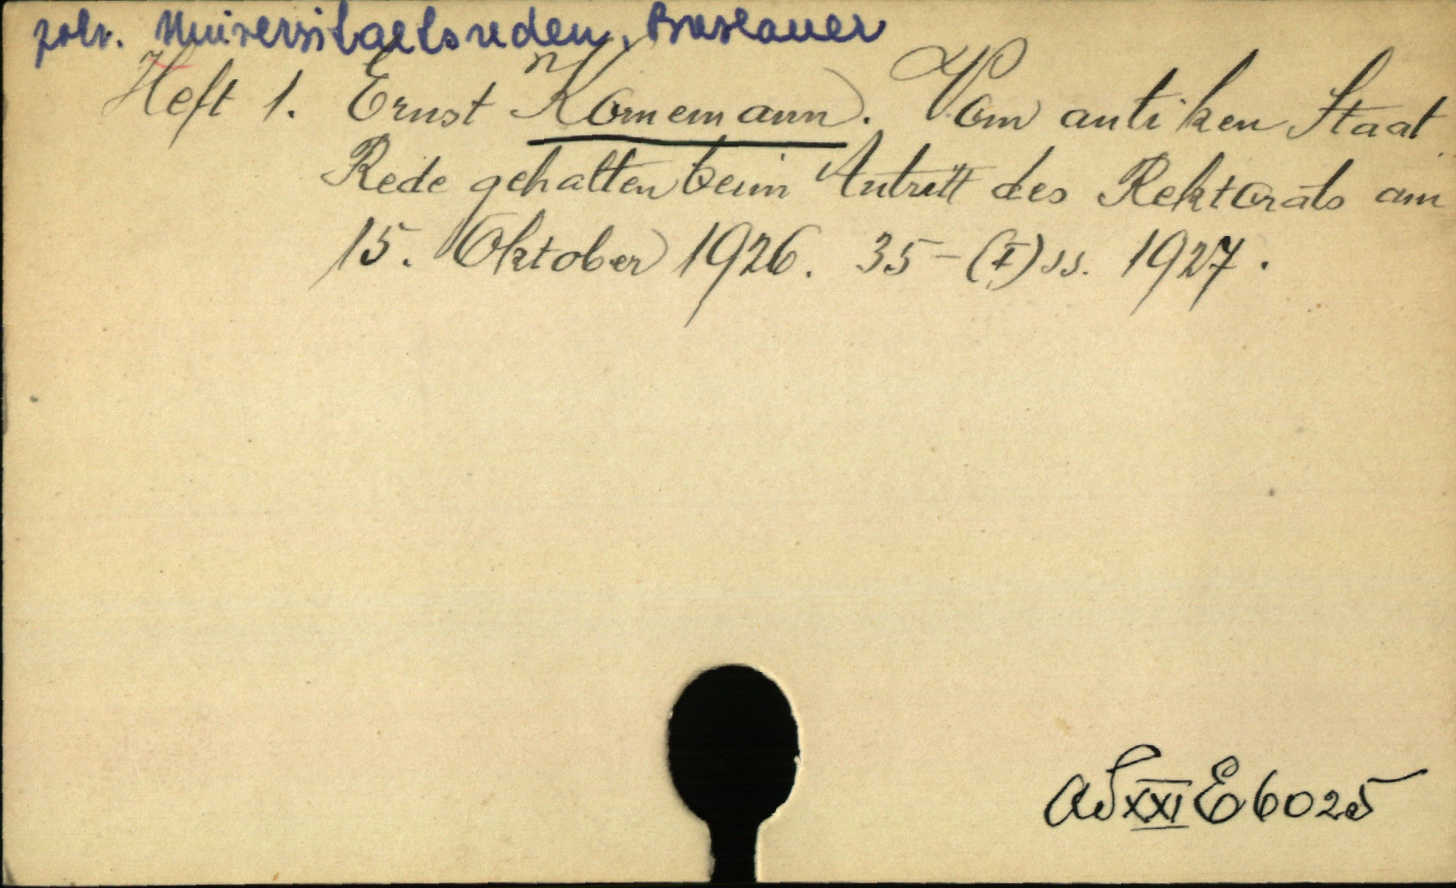 zobr. Universitaetsreden, Breslauer
Heft 1. Ernst Kornemann. Vom antiken Staat.
Rede gehalten beim Antritt des Rektorats am
15. Oktober 1926. 35-(I) ss. 1927.
AS XXI E 6025